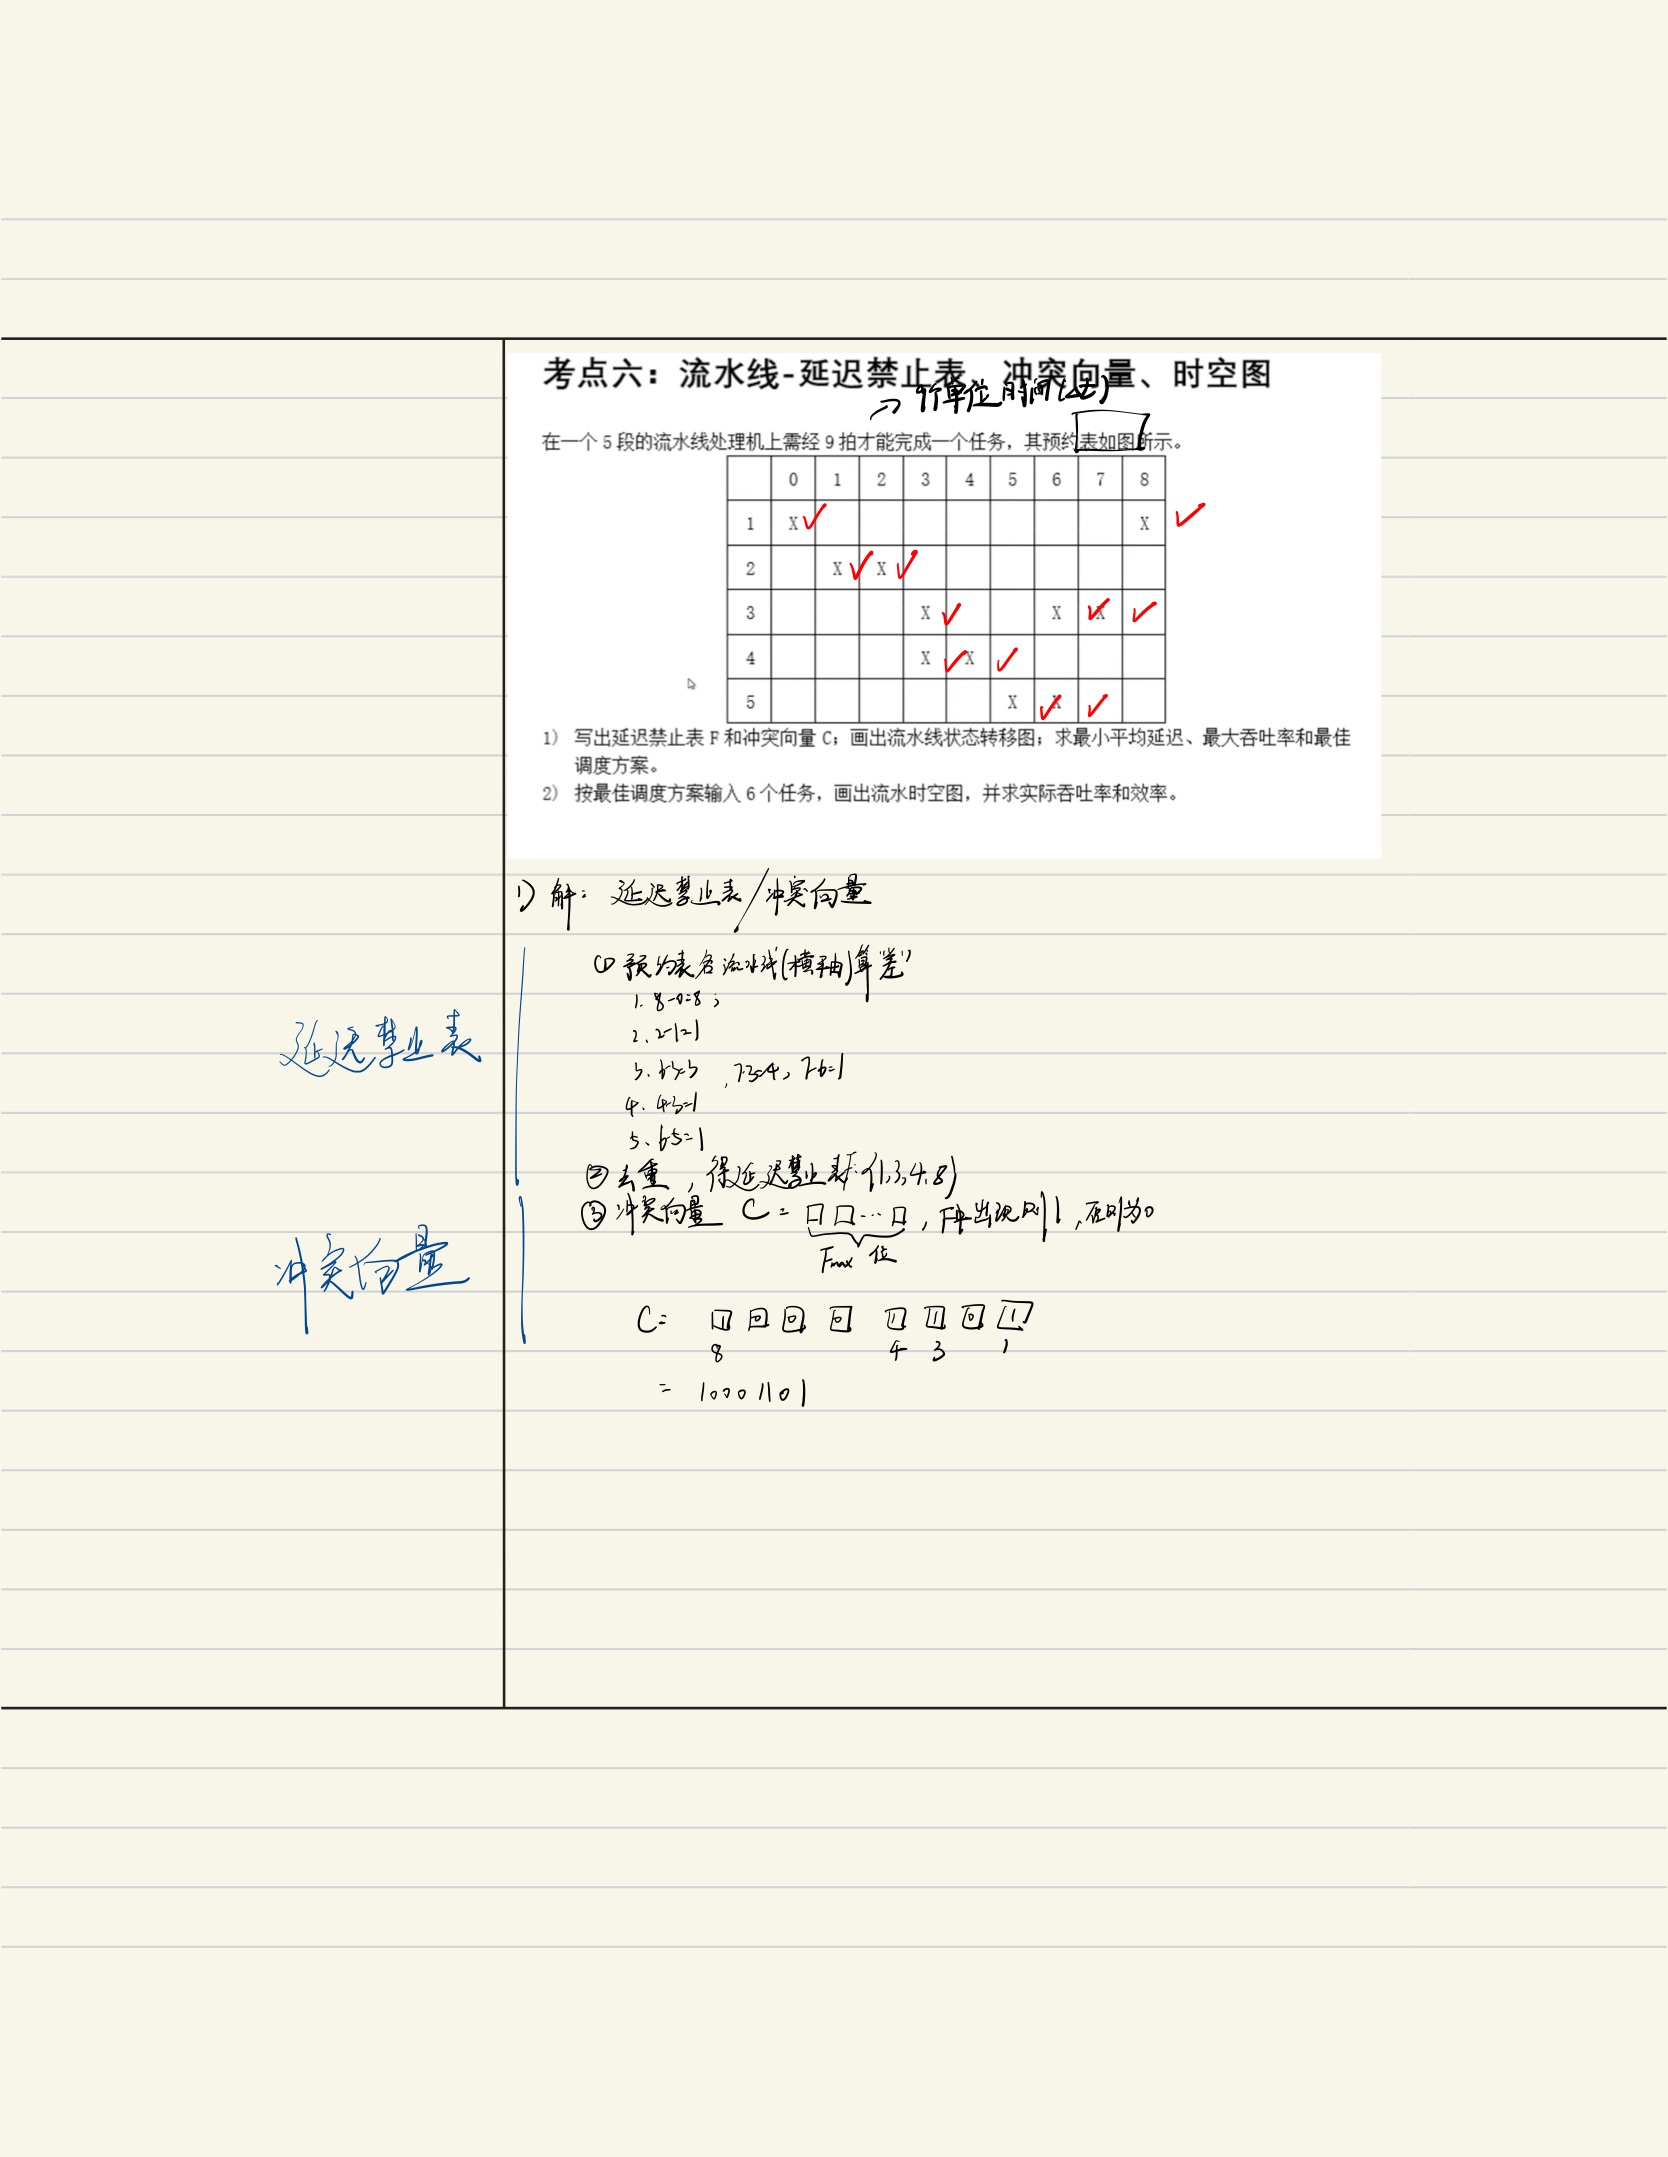 考点六：流水线-延迟禁止表、冲突向量、时空图
→ 9个单位时间(Δt)
在一个 5 段的流水线处理机上需经 9 拍才能完成一个任务，其预约表如图所示。
0 1 2 3 4 5 6 7 8
1 X ✓ X ✓
2 X ✓ X ✓
3 X ✓ X X ✓ ✓
4 X ✓ X ✓
5 X X ✓ ✓
1） 写出延迟禁止表 F 和冲突向量 C；画出流水线状态转移图；求最小平均延迟、最大吞吐率和最佳
调度方案。
2） 按最佳调度方案输入 6 个任务，画出流水时空图，并求实际吞吐率和效率。
1) 解： 延迟禁止表/冲突向量
① 预约表各流水线(横轴)算"差"
1. 8-0=8；
2. 2-1=1
延迟禁止表
3. 6-3=3，7-3=4，7-6=1
4. 4-3=1
5. 6-5=1
② 去重，得延迟禁止表F:{1,3,4,8}
③ 冲突向量 C = □□…□，F中出现则1，否则为0
Fmax 位
冲突向量
C= 1 0 0 0 1 1 0 1
8 4 3 1
= 10001101